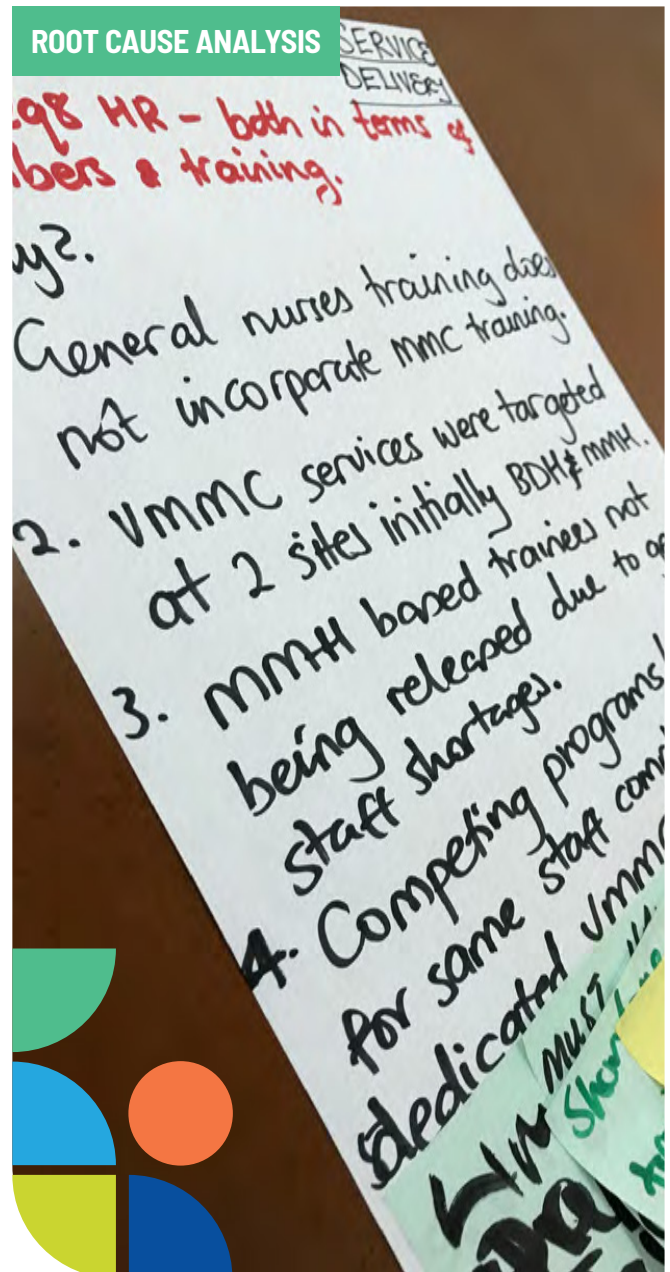 ROOT CAUSE ANALYSIS
SERVICE
DELIVERY
HR - both in terms of
& training.
General nurses training does
not incorporate mmc training.
2. VMMC services were targeted
at 2 sites initially BDH & MMH.
3. MMH based trainees not
being released due to
staff shortages.
4. Competing programs
for same staff
dedicated
MUST